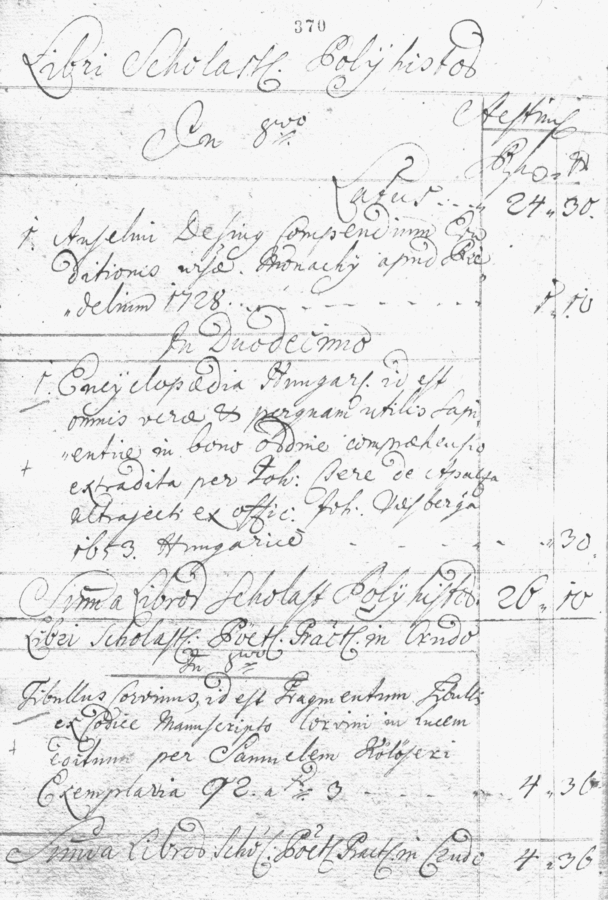 370
Libri Scholast. Polÿhistor
Aestim
In 8vo
Latus . . . . 24 „ 30.
1. Anselmi Desing Compendium Eru
ditionis Monachÿ apud Rie
„delium 1728. . . 1 „ 10
In Duodecimo
1. Encÿclopædia Hungar. id est
omnis veræ & perquam utilis Sapi
„entiæ in bono ordine compræhensio
extradita per Joh: Csere de Apatza
Ultrajecti ex offic. Joh. Væsberga
1653. Hungaricè - - - „ 30.
Sum̄a Libror Scholast Polÿhistor. 26 „ 10
Libri Scholast. Pöet. Pract. in Crudo
In 8vo
Tibullus Corvinus, id est Fragmentum Tibulli
ex Codice Manuscripto Corvini in lucem
Editum per Samuelem Kölöseri
Exemplaria 92. a 3 - - - 4 „ 36
Sum̄a Libror Scho. Pöet. Pract. in Crudo 4 „ 36